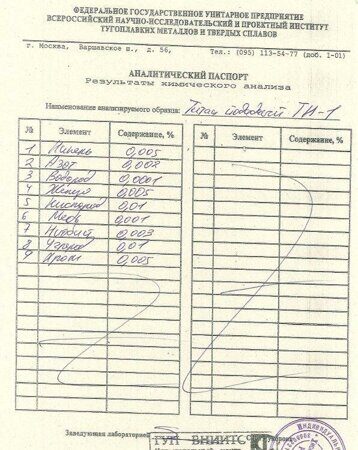 ФЕДЕРАЛЬНОЕ ГОСУДАРСТВЕННОЕ УНИТАРНОЕ ПРЕДПРИЯТИЕ
ВСЕРОССИЙСКИЙ НАУЧНО-ИССЛЕДОВАТЕЛЬСКИЙ И ПРОЕКТНЫЙ ИНСТИТУТ
ТУГОПЛАВКИХ МЕТАЛЛОВ И ТВЕРДЫХ СПЛАВОВ
г. Москва, Варшавское ш., д. 56, Тел.: (095) 113-54-77 (доб. 1-01)
АНАЛИТИЧЕСКИЙ ПАСПОРТ
Результаты химического анализа
Наименование анализируемого образца: Титан йодидный ТИ-1
№ Элемент Содержание, % № Элемент Содержание, %
1 Никель 0,005
2 Азот 0,002
3 Водород 0,0001
4 Железо 0,005
5 Кислород 0,01
6 Медь 0,001
7 Ниобий 0,003
8 Углерод 0,01
9 Хром 0,005
Заведующая лабораторией
ГУП ВНИИТС